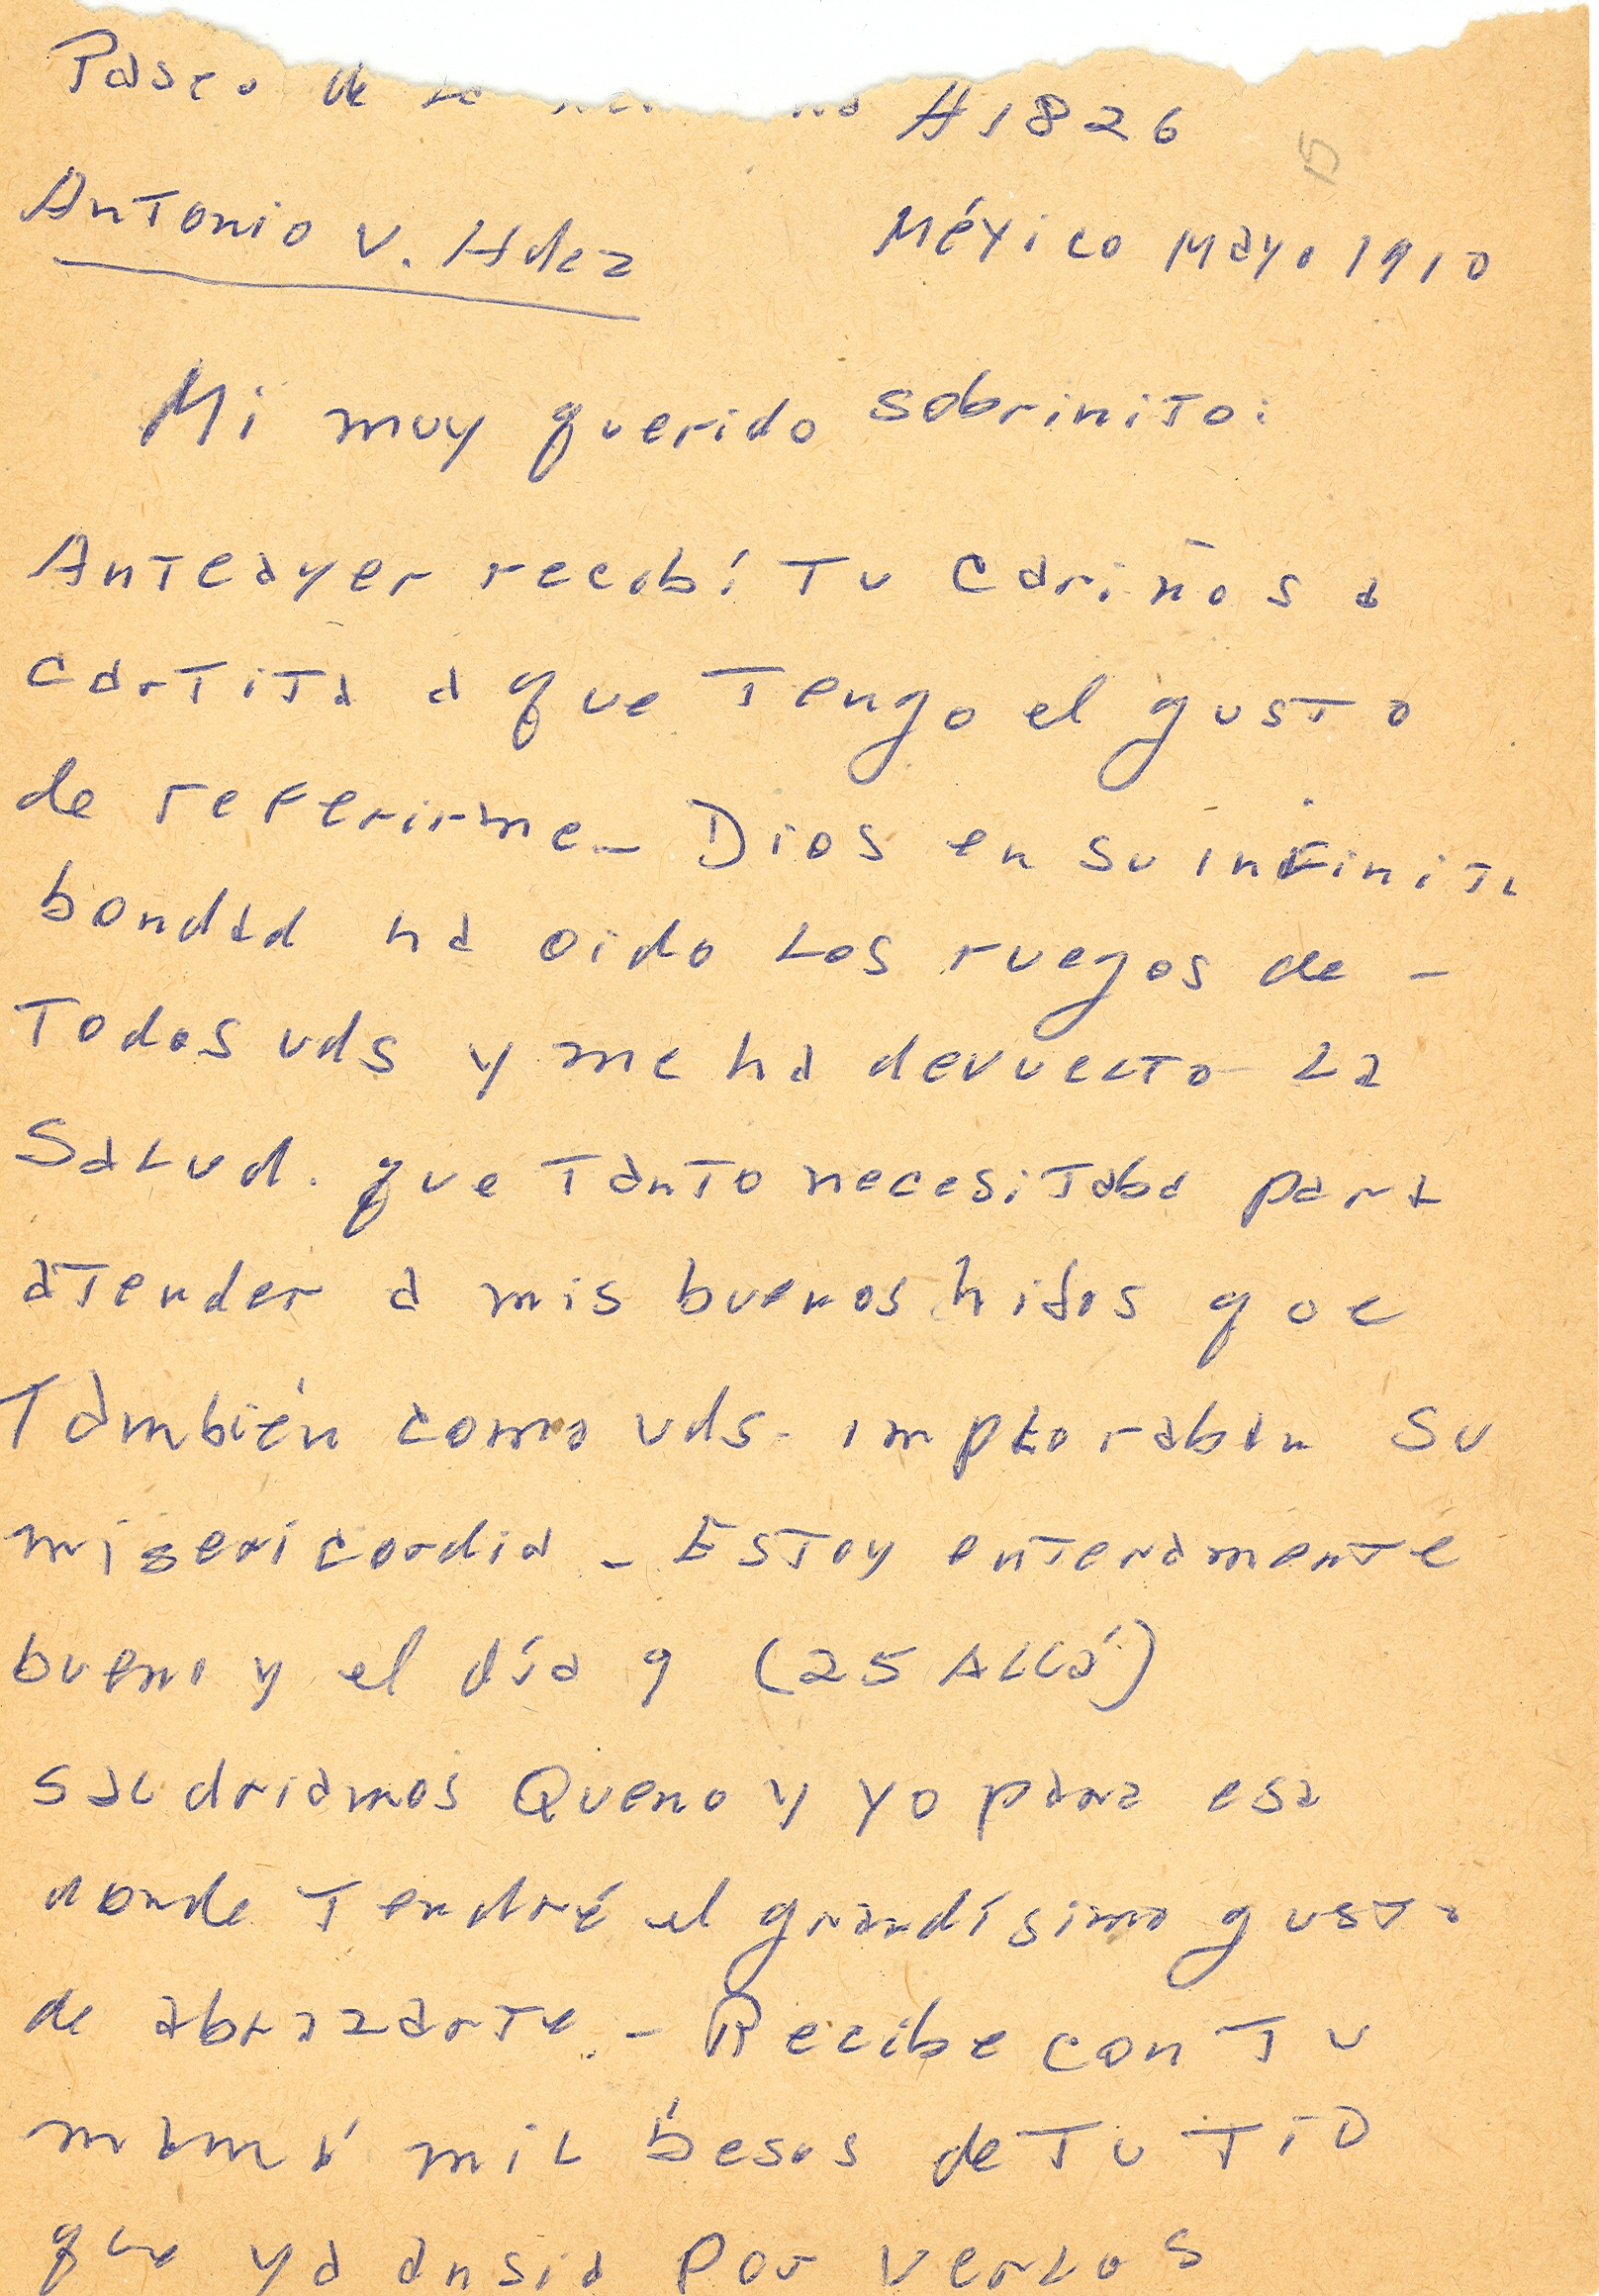 Paseo de la #1826
Antonio V. Hdez México Mayo 1910
Mi muy querido sobrinito:
Anteayer recibí tu cariñosa
cartita a que tengo el gusto
de referirme_ Dios en su infinita
bondad ha oido los ruegos de -
todos vds y me ha devuelto la
Salud. que tanto necesitaba para
atender a mis buenos hidos que
También como vds. imploraban su
misericordia - Estoy enteramente
bueno y el día 9 (25 allá)
saldriamos Queno y yo para esa
donde tendré el grandísimo gusto
de abrazarte. - Recibe con tu
mamá mil besos de tu tio
que ya ansia por verlos